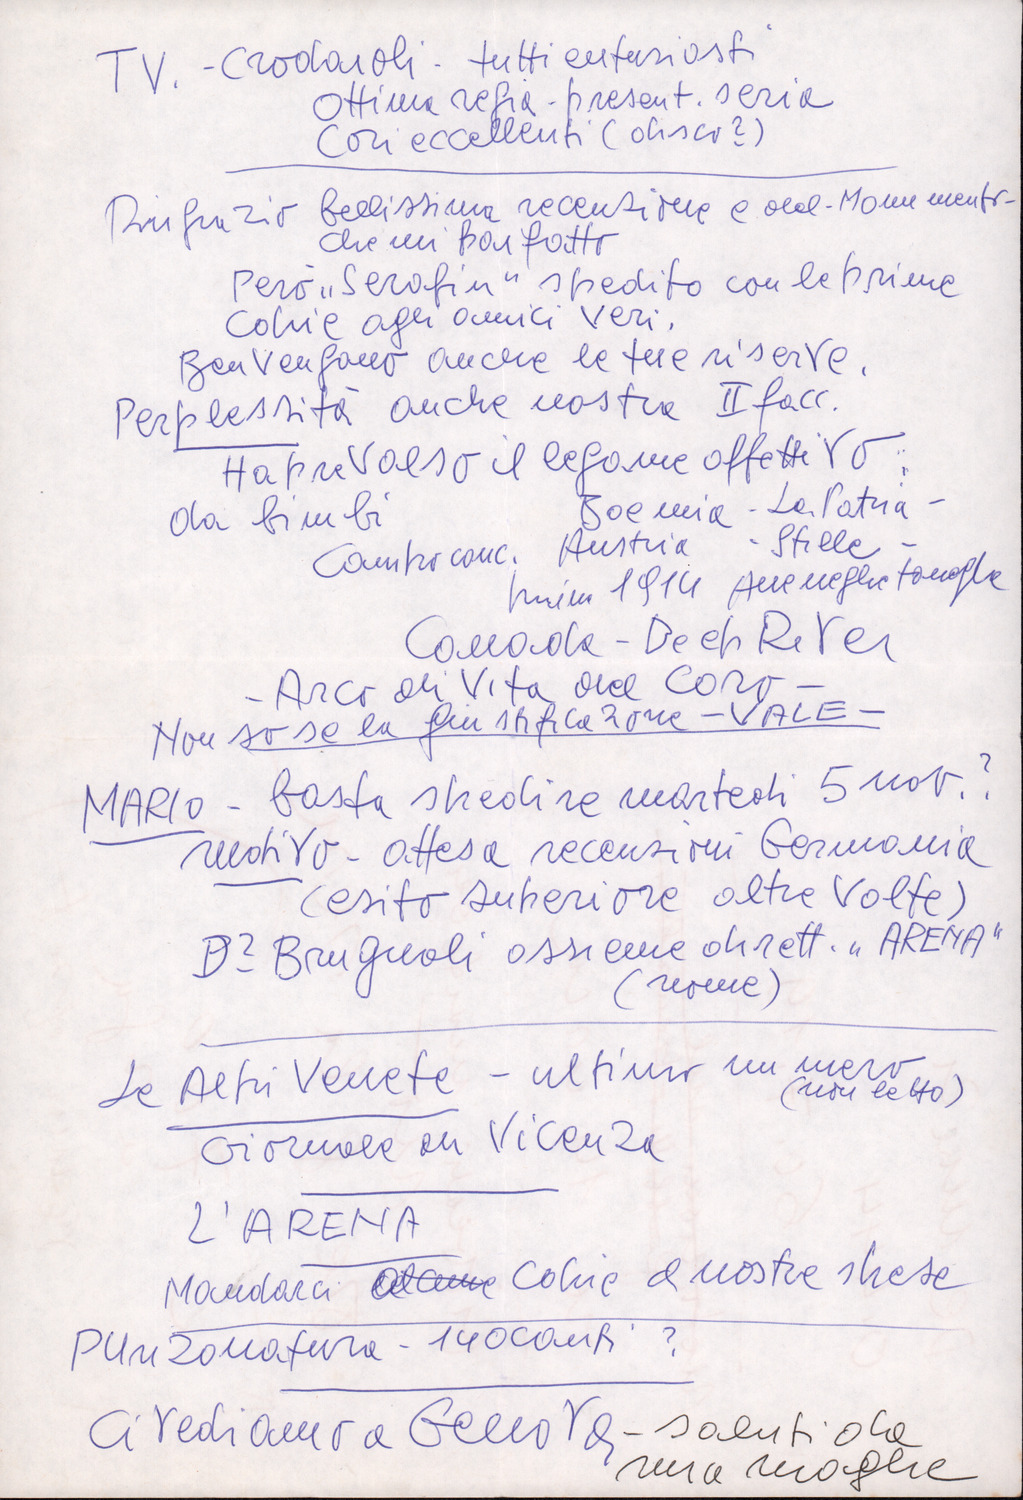 TV. - Crodaioli - tutti entusiasti
Ottima regia - present. seria
Cori eccellenti (disco?)
Ringrazio bellissima recensione e del - Monumento -
che mi hai fatto
Però „Serafin" spedito con le prime
copie agli amici veri.
Ben vengano anche le tue riserve.
Perplessità anche nostra II facc.
Ha prevalso il legame affettivo :
da bimbi Boemia - La Patria -
Austria - Stelle -
1914
Canada - Deep River
- Arco di Vita del Coro -
Non so se la giustificazione - VALE -
MARIO - basta spedire martedì 5 nov. ?
motivo - attesa recensioni Germania
(esito superiore altre volte)
D? Brugnoli assieme dirett. „ARENA"
(nome)
Le Alpi Venete - ultimo numero
(non letto)
Giornale di Vicenza
L'ARENA
Mandarci copie a nostre spese
Punzonatura - 140 canti ?
Ci vediamo a Genova - saluti da
mia moglie